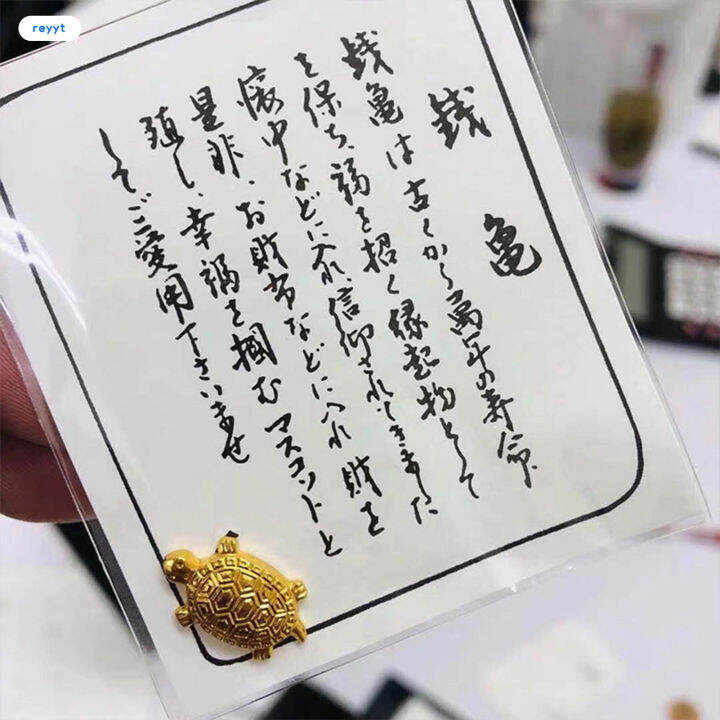 reyyt
銭亀
銭亀は古くから萬年の寿命
を保ち、福を招く縁起物として
懐中などに入れ、信仰されてきました
是非、お財布などに入れ財を
殖し、幸福を掴むマスコットと
してご愛用下さいませ